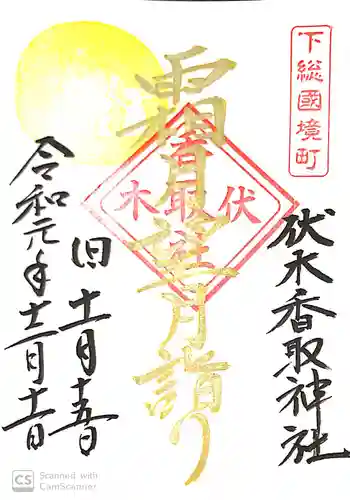 下総國境町
伏木香取神社
霜月望月詣り
伏木
香取社
旧十一月十五日
令和元年十二月十一日
CS
Scanned with
CamScanner